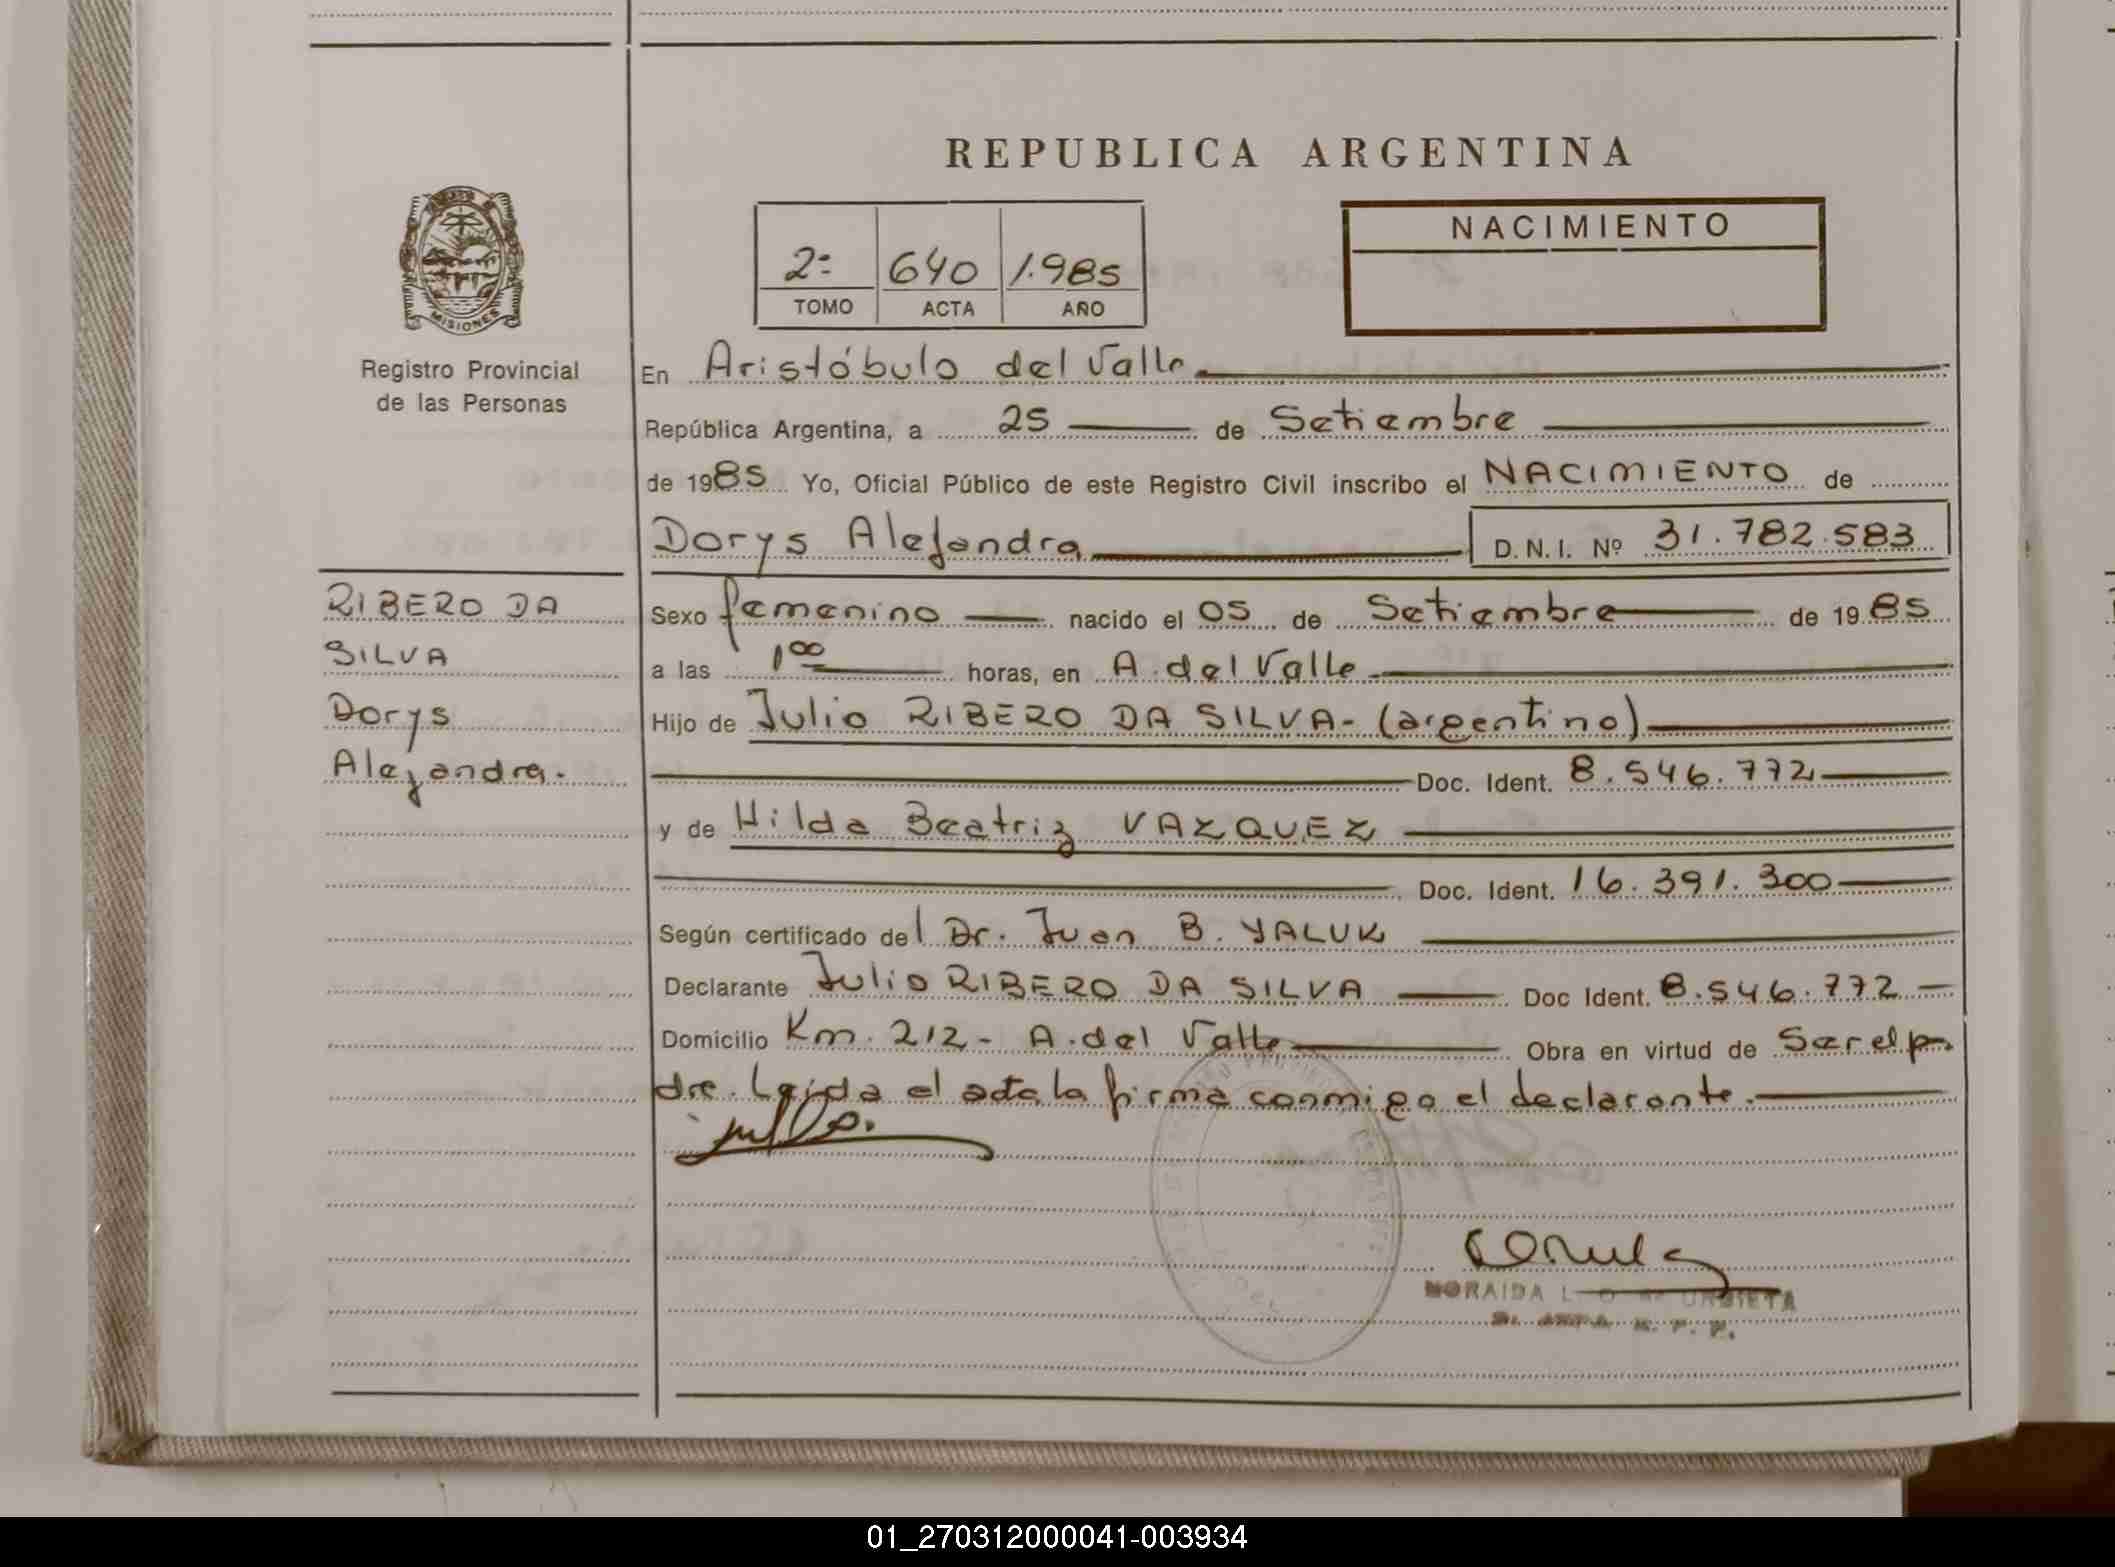 REPUBLICA ARGENTINA
NACIMIENTO
2º 640 1.985
TOMO ACTA AÑO
MISIONES
Registro Provincial
de las Personas
En Aristóbulo del Valle
República Argentina, a 25 de Setiembre
de 1985 Yo, Oficial Público de este Registro Civil inscribo el NACIMIENTO de
Dorys Alejandra D.N.I. Nº 31.782.583
RIBERO DA
SILVA
Dorys
Alejandra.
Sexo femenino nacido el 05 de Setiembre de 1985
a las 1 00 horas, en A. del Valle
Hijo de Julio RIBERO DA SILVA- (argentino)
Doc. Ident. 8.546.772
y de Hilda Beatriz VAZQUEZ
Doc. Ident. 16.391.300
Según certificado del Dr. Juan B. YALUK
Declarante Julio RIBERO DA SILVA Doc Ident. 8.546.772
Domicilio Km. 212- A. del Valle Obra en virtud de Ser el pa
dre. Leída el acta la firma conmigo el declarante.
NORAIDA L URBIETA
R. P. P.
01_270312000041-003934